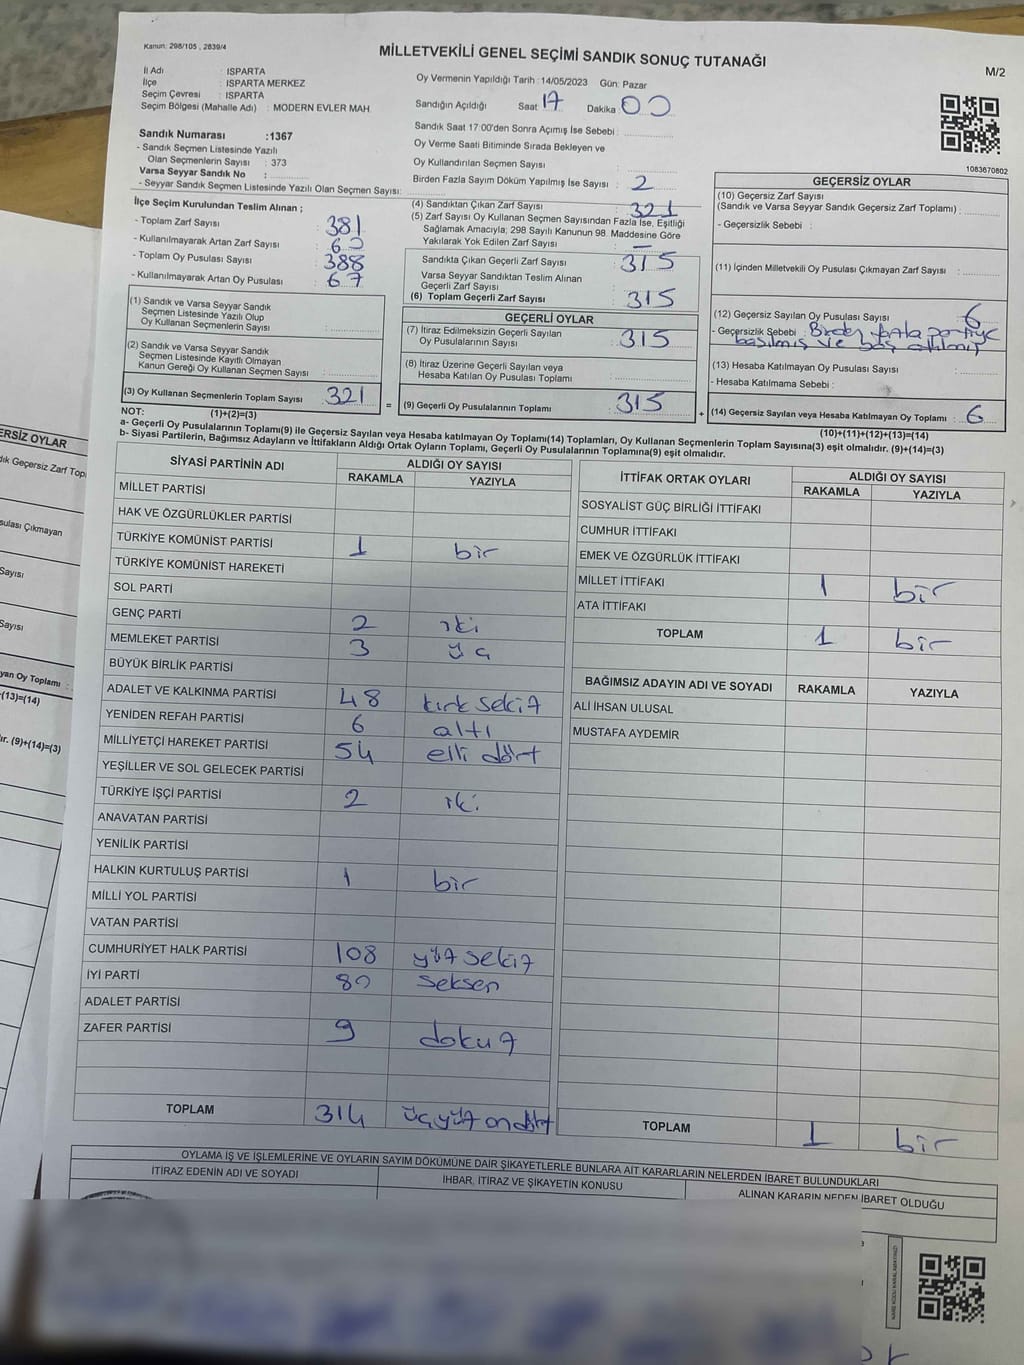 Kanun: 298/105 , 2839/4
MİLLETVEKİLİ GENEL SEÇİMİ SANDIK SONUÇ TUTANAĞI
M/2
İl Adı : ISPARTA
İlçe : ISPARTA MERKEZ
Seçim Çevresi : ISPARTA
Seçim Bölgesi (Mahalle Adı) : MODERN EVLER MAH.
Oy Vermenin Yapıldığı Tarih : 14/05/2023 Gün: Pazar
Sandığın Açıldığı Saat 17 Dakika 00
Sandık Saat 17:00'den Sonra Açılmış İse Sebebi :
Oy Verme Saati Bitiminde Sırada Bekleyen ve
Oy Kullandırılan Seçmen Sayısı :
Birden Fazla Sayım Döküm Yapılmış İse Sayısı : 2
Sandık Numarası :1367
- Sandık Seçmen Listesinde Yazılı
Olan Seçmenlerin Sayısı : 373
Varsa Seyyar Sandık No :
- Seyyar Sandık Seçmen Listesinde Yazılı Olan Seçmen Sayısı:
1083670802
İlçe Seçim Kurulundan Teslim Alınan ;
- Toplam Zarf Sayısı : 381
- Kullanılmayarak Artan Zarf Sayısı : 60
- Toplam Oy Pusulası Sayısı : 388
- Kullanılmayarak Artan Oy Pusulası : 67
(1) Sandık ve Varsa Seyyar Sandık
Seçmen Listesinde Yazılı Olup
Oy Kullanan Seçmenlerin Sayısı :
(2) Sandık ve Varsa Seyyar Sandık
Seçmen Listesinde Kayıtlı Olmayan
Kanun Gereği Oy Kullanan Seçmen Sayısı :
(3) Oy Kullanan Seçmenlerin Toplam Sayısı : 321
(4) Sandıktan Çıkan Zarf Sayısı : 321
(5) Zarf Sayısı Oy Kullanan Seçmen Sayısından Fazla İse, Eşitliği
Sağlamak Amacıyla; 298 Sayılı Kanunun 98. Maddesine Göre
Yakılarak Yok Edilen Zarf Sayısı : –
Sandıkta Çıkan Geçerli Zarf Sayısı : 315
Varsa Seyyar Sandıktan Teslim Alınan
Geçerli Zarf Sayısı :
(6) Toplam Geçerli Zarf Sayısı : 315
GEÇERLİ OYLAR
(7) İtiraz Edilmeksizin Geçerli Sayılan
Oy Pusulalarının Sayısı : 315
(8) İtiraz Üzerine Geçerli Sayılan veya
Hesaba Katılan Oy Pusulası Toplamı :
= (9) Geçerli Oy Pusulalarının Toplamı : 315 +
GEÇERSİZ OYLAR
(10) Geçersiz Zarf Sayısı
(Sandık ve Varsa Seyyar Sandık Geçersiz Zarf Toplamı) :
- Geçersizlik Sebebi :
(11) İçinden Milletvekili Oy Pusulası Çıkmayan Zarf Sayısı :
(12) Geçersiz Sayılan Oy Pusulası Sayısı : 6
- Geçersizlik Sebebi : Birden fazla partiye
basılmış ve boş atılmış
(13) Hesaba Katılmayan Oy Pusulası Sayısı :
- Hesaba Katılmama Sebebi :
(14) Geçersiz Sayılan veya Hesaba Katılmayan Oy Toplamı : 6
NOT: (1)+(2)=(3)
(10)+(11)+(12)+(13)=(14)
a- Geçerli Oy Pusulalarının Toplamı(9) ile Geçersiz Sayılan veya Hesaba katılmayan Oy Toplamı(14) Toplamları, Oy Kullanan Seçmenlerin Toplam Sayısına(3) eşit olmalıdır. (9)+(14)=(3)
b- Siyasi Partilerin, Bağımsız Adayların ve İttifakların Aldığı Ortak Oyların Toplamı, Geçerli Oy Pusulalarının Toplamına(9) eşit olmalıdır.
SİYASİ PARTİNİN ADI ALDIĞI OY SAYISI
RAKAMLA YAZIYLA
MİLLET PARTİSİ
HAK VE ÖZGÜRLÜKLER PARTİSİ
TÜRKİYE KOMÜNİST PARTİSİ 1 bir
TÜRKİYE KOMÜNİST HAREKETİ
SOL PARTİ
GENÇ PARTİ 2 iki
MEMLEKET PARTİSİ 3 üç
BÜYÜK BİRLİK PARTİSİ
ADALET VE KALKINMA PARTİSİ 48 kırk sekiz
YENİDEN REFAH PARTİSİ 6 altı
MİLLİYETÇİ HAREKET PARTİSİ 54 elli dört
YEŞİLLER VE SOL GELECEK PARTİSİ
TÜRKİYE İŞÇİ PARTİSİ 2 iki
ANAVATAN PARTİSİ
YENİLİK PARTİSİ
HALKIN KURTULUŞ PARTİSİ 1 bir
MİLLİ YOL PARTİSİ
VATAN PARTİSİ
CUMHURİYET HALK PARTİSİ 108 yüz sekiz
İYİ PARTİ 80 seksen
ADALET PARTİSİ
ZAFER PARTİSİ 9 dokuz
TOPLAM 314 üçyüz ondört
İTTİFAK ORTAK OYLARI ALDIĞI OY SAYISI
RAKAMLA YAZIYLA
SOSYALİST GÜÇ BİRLİĞİ İTTİFAKI
CUMHUR İTTİFAKI
EMEK VE ÖZGÜRLÜK İTTİFAKI
MİLLET İTTİFAKI 1 bir
ATA İTTİFAKI
TOPLAM 1 bir
BAĞIMSIZ ADAYIN ADI VE SOYADI RAKAMLA YAZIYLA
ALİ İHSAN ULUSAL
MUSTAFA AYDEMİR
TOPLAM 1 bir
OYLAMA İŞ VE İŞLEMLERİNE VE OYLARIN SAYIM DÖKÜMÜNE DAİR ŞİKAYETLERLE BUNLARA AİT KARARLARIN NELERDEN İBARET BULUNDUKLARI
İTİRAZ EDENİN ADI VE SOYADI
İHBAR, İTİRAZ VE ŞİKAYETİN KONUSU
ALINAN KARARIN NEDEN İBARET OLDUĞU
ERSİZ OYLAR
dık Geçersiz Zarf Top
sulası Çıkmayan
Sayısı
Sayısı
yan Oy Toplamı :
(13)=(14)
ır. (9)+(14)=(3)